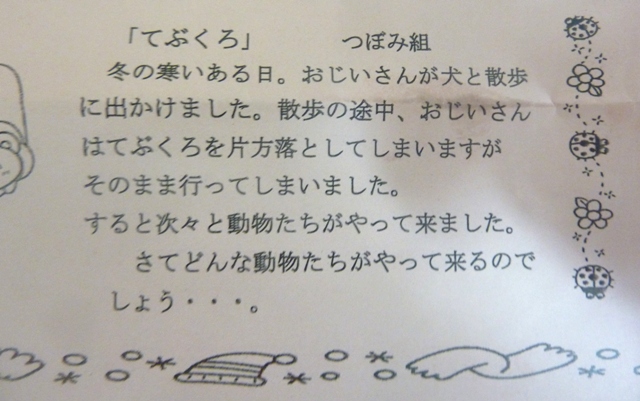 「てぶくろ」　つぼみ組
冬の寒いある日。おじいさんが犬と散歩
に出かけました。散歩の途中、おじいさん
はてぶくろを片方落としてしまいますが
そのまま行ってしまいました。
すると次々と動物たちがやって来ました。
さてどんな動物たちがやって来るので
しょう・・・。